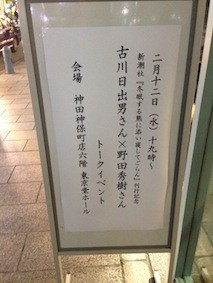 二月十二日（水）十九時～
新潮社『冬眠する熊に添い寝してごらん』刊行記念
古川日出男さん×野田秀樹さん
トークイベント
会場　神田神保町店六階　東京堂ホール